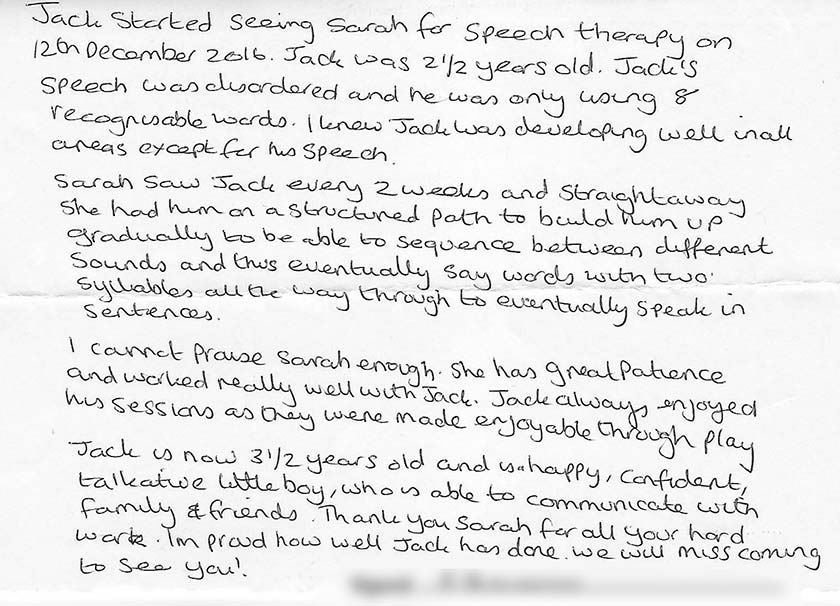 Jack Started Seeing Sarah for Speech therapy on
12th December 2016. Jack was 2 1/2 years old. Jack's
Speech was disordered and he was only using 8
recognisable words. I knew Jack was developing well in all
areas except for his speech.
Sarah saw Jack every 2 weeks and straightaway
She had him on a structured path to build him up
gradually to be able to sequence between different
Sounds and thus eventually say words with two
Syllables all the way through to eventually speak in
sentences.
I cannot praise Sarah enough. She has great patience
and worked really well with Jack. Jack always enjoyed
his sessions as they were made enjoyable through play
Jack is now 3 1/2 years old and is a happy, confident,
talkative little boy, who is able to communicate with
family & friends. Thank you Sarah for all your hard
work. I'm proud how well Jack has done. We will miss coming
to see you!